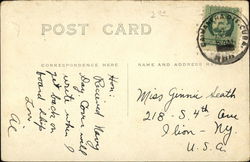 POST CARD
CORRESPONDENCE HERE
NAME AND ADDRESS
Hon:
Received Navy
Day Card will
write when I
get back on
board ship
Love
Al
Miss Ginnie Seath
218 - S. 4th Ave
Ilion - Ny.
U.S.A.